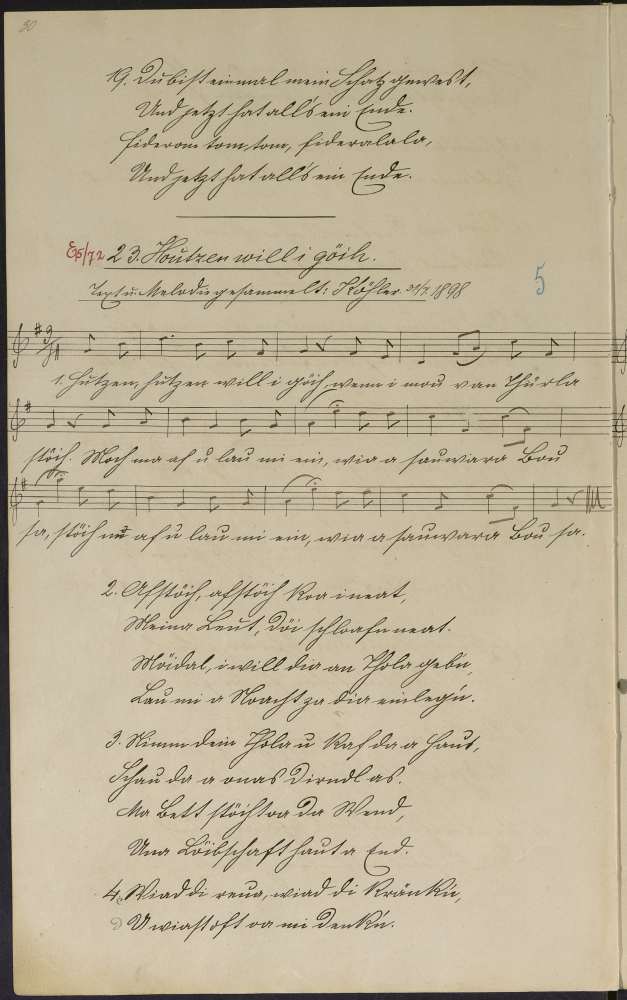 30
19. Du bist einmal mein Schatz gewest,
Und jetzt hat all's ein Ende.
Fideram tom, tom, fideralala,
Und jetzt hat all's ein Ende.
E5/72 23. Houtzen will i göih.
5
Text u. Melodie gesammelt: Köhler 1898
1. Hutzen, hutzen will i göih, wenn i mou van Thürla
stöih. Moch ma af u lau mi ein, wia a sauwara Bou
sa, stöih af u lau mi ein, wia a sauwara Bou sa.
2. Afstöih, afstöih koa i neat,
Meina Leut, döi schloafn neat.
Möidal, i will dia an Thola geb'n,
Lau mi a Noacht za dia einleg'n.
3. Nimm dein Thola u kaf da a Haus,
Schau da a onas Dirndl as.
Ma Bett stöiht oa da Wend,
Una Löibschaft haut a End.
4. Wiad di reua, wiad di kränk'n,
U wiast oft oa mi denk'n.